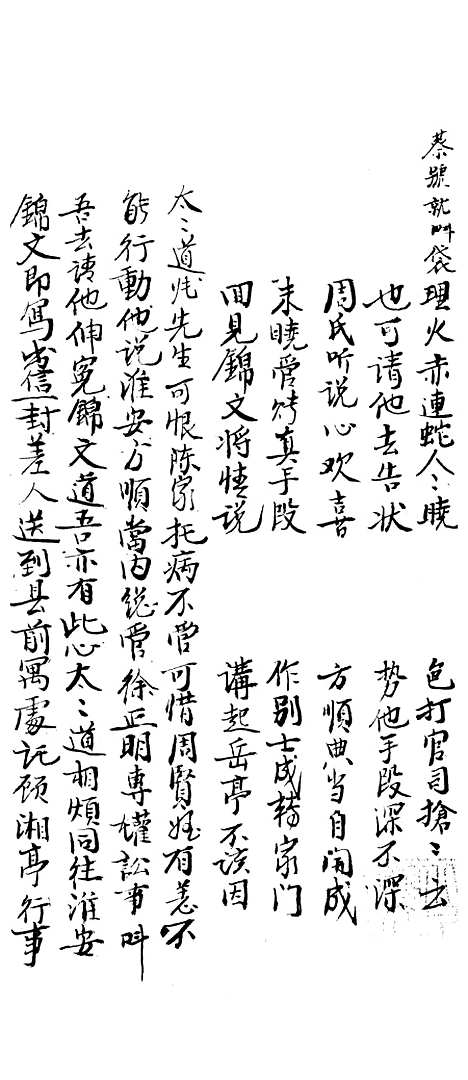 蔡號就叫袋理火赤連蛇人〻曉 包打官司搶〻去
也可請他去告狀 势他手段深不深
周氏听说心欢喜 方順典当自開成
未曉管烤真手段 作别士成轉家门
回見錦文将情说 講起岳亭不该因
太〻道 先生可恨陈家托病不管可惜周賢姪有恙不
能行動他说淮安方順當内總管徐正明專權訟事叫
吾去請他伸冤錦文道吾亦有此心太〻道相煩同往淮安
錦文即寫出信一封差人送到县前寓處託顾湘亭行事